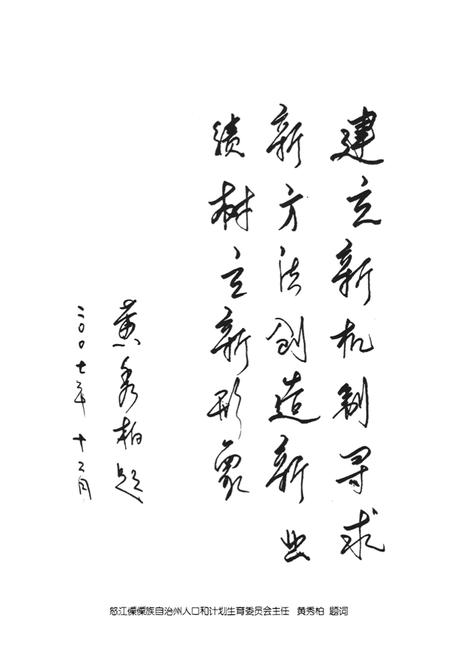 建立新机制寻求
新方法创造新业
绩树立新形象
黄秀柏题
二〇〇七年十二月
怒江傈僳族自治州人口和计划生育委员会主任 黄秀柏 题词